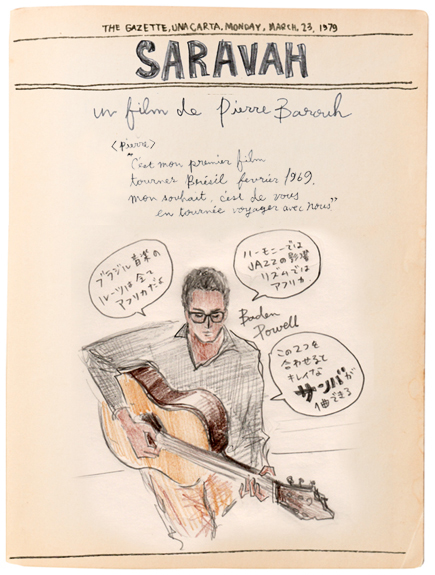 THE GAZETTE, UNACARTA, MONDAY, MARCH, 23, 1979
SARAVAH
un film de Pierre Barouh
<Pierre>
"C'est mon premier film
tourner Brésil fevrier 1969,
mon souhait, c'est de vous
en tournée voyager avec nous"
ブラジル音楽の
ルーツは全て
アフリカだよ
ハーモニーでは
JAZZの影響
リズムでは
アフリカ
Baden
Powell
この2つを
合わせると
キレイな
サンバが
1曲できる